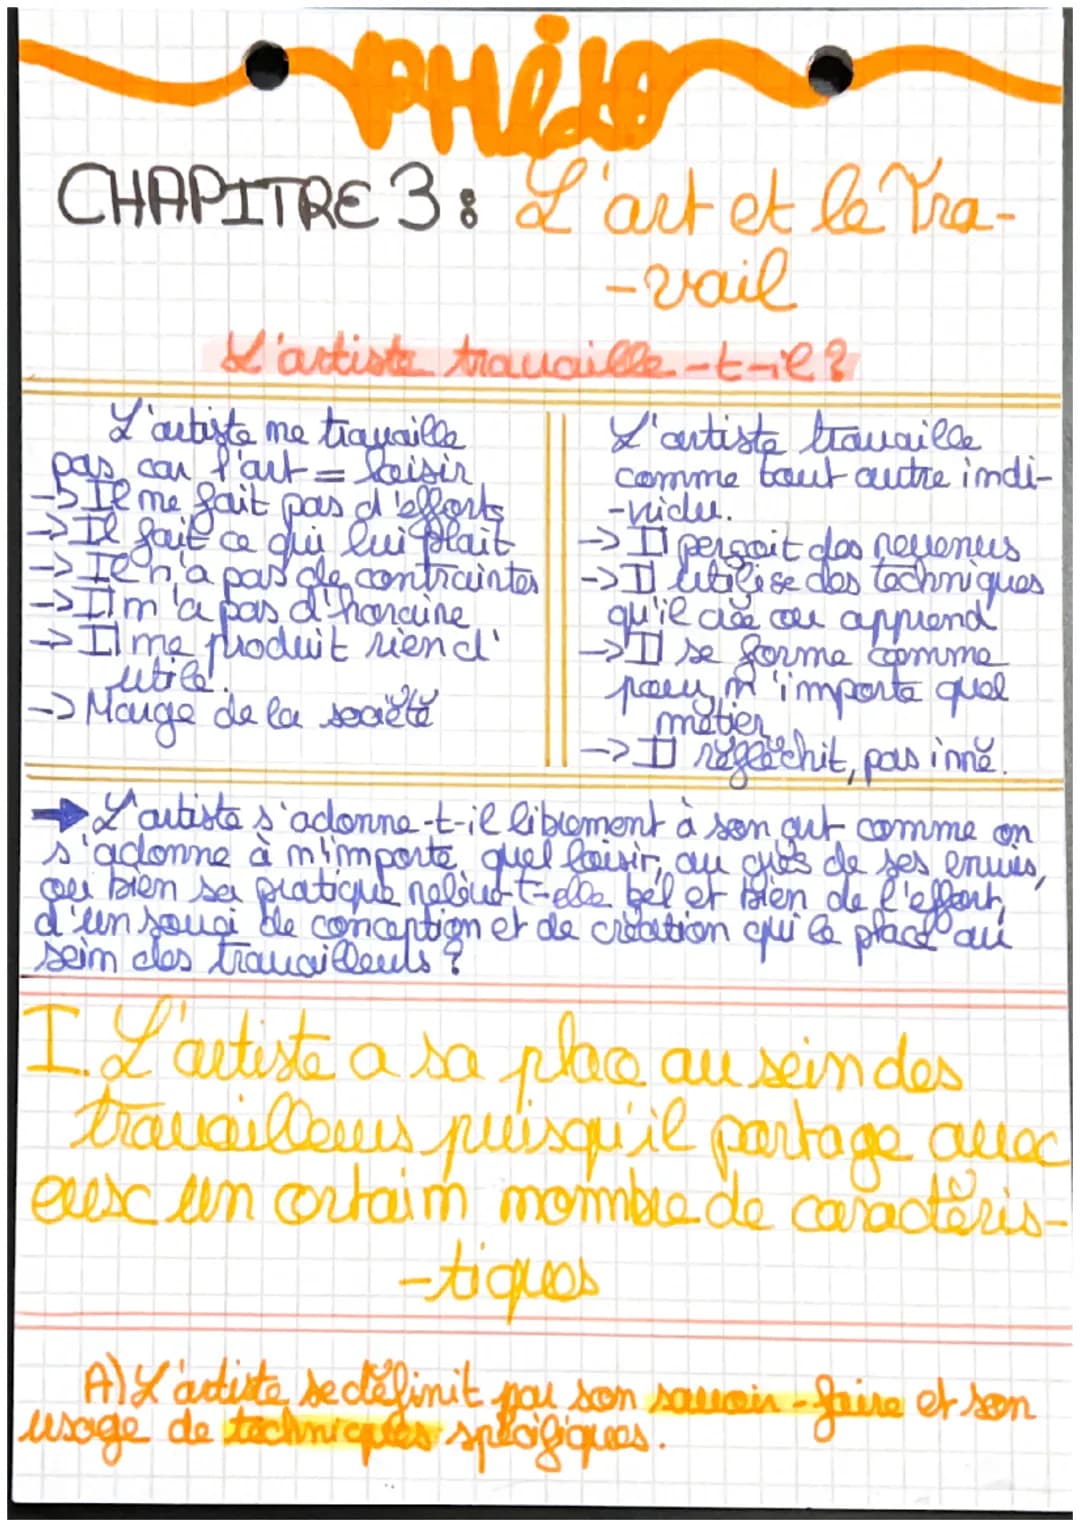 PHILO
CHAPITRE 3 : L'art et le Tra-
-vail
L'artiste travaille-t-il ?
L'artiste ne travaille
pas car l'art = loisir
-> Il ne fait pas d'efforts
-> Il fait ce qui lui plait
-> Il n'a pas de contraintes
-> Il n'a pas d'horaire
-> Il ne produit rien d'
utile.
-> Marge de la société
L'artiste travaille
comme tout autre indi-
-vidu.
-> Il perçoit des revenus
-> Il utilise des techniques
qu'il crée ou apprend
-> Il se forme comme
pour n'importe quel
métier
-> Il réfléchit, pas inné.
→ L'artiste s'adonne-t-il librement à son art comme on
s'adonne à n'importe quel loisir, au grès de ses envies,
ou bien sa pratique relève-t-elle bel et bien de l'effort,
d'un souci de conception et de création qui le place au
sein des travailleurs ?
I. L'artiste a sa place au sein des
travailleurs puisqu'il partage avec
eux un certain nombre de caractéris-
-tiques
A) L'artiste se définit par son savoir-faire et son
usage de techniques spécifiques.